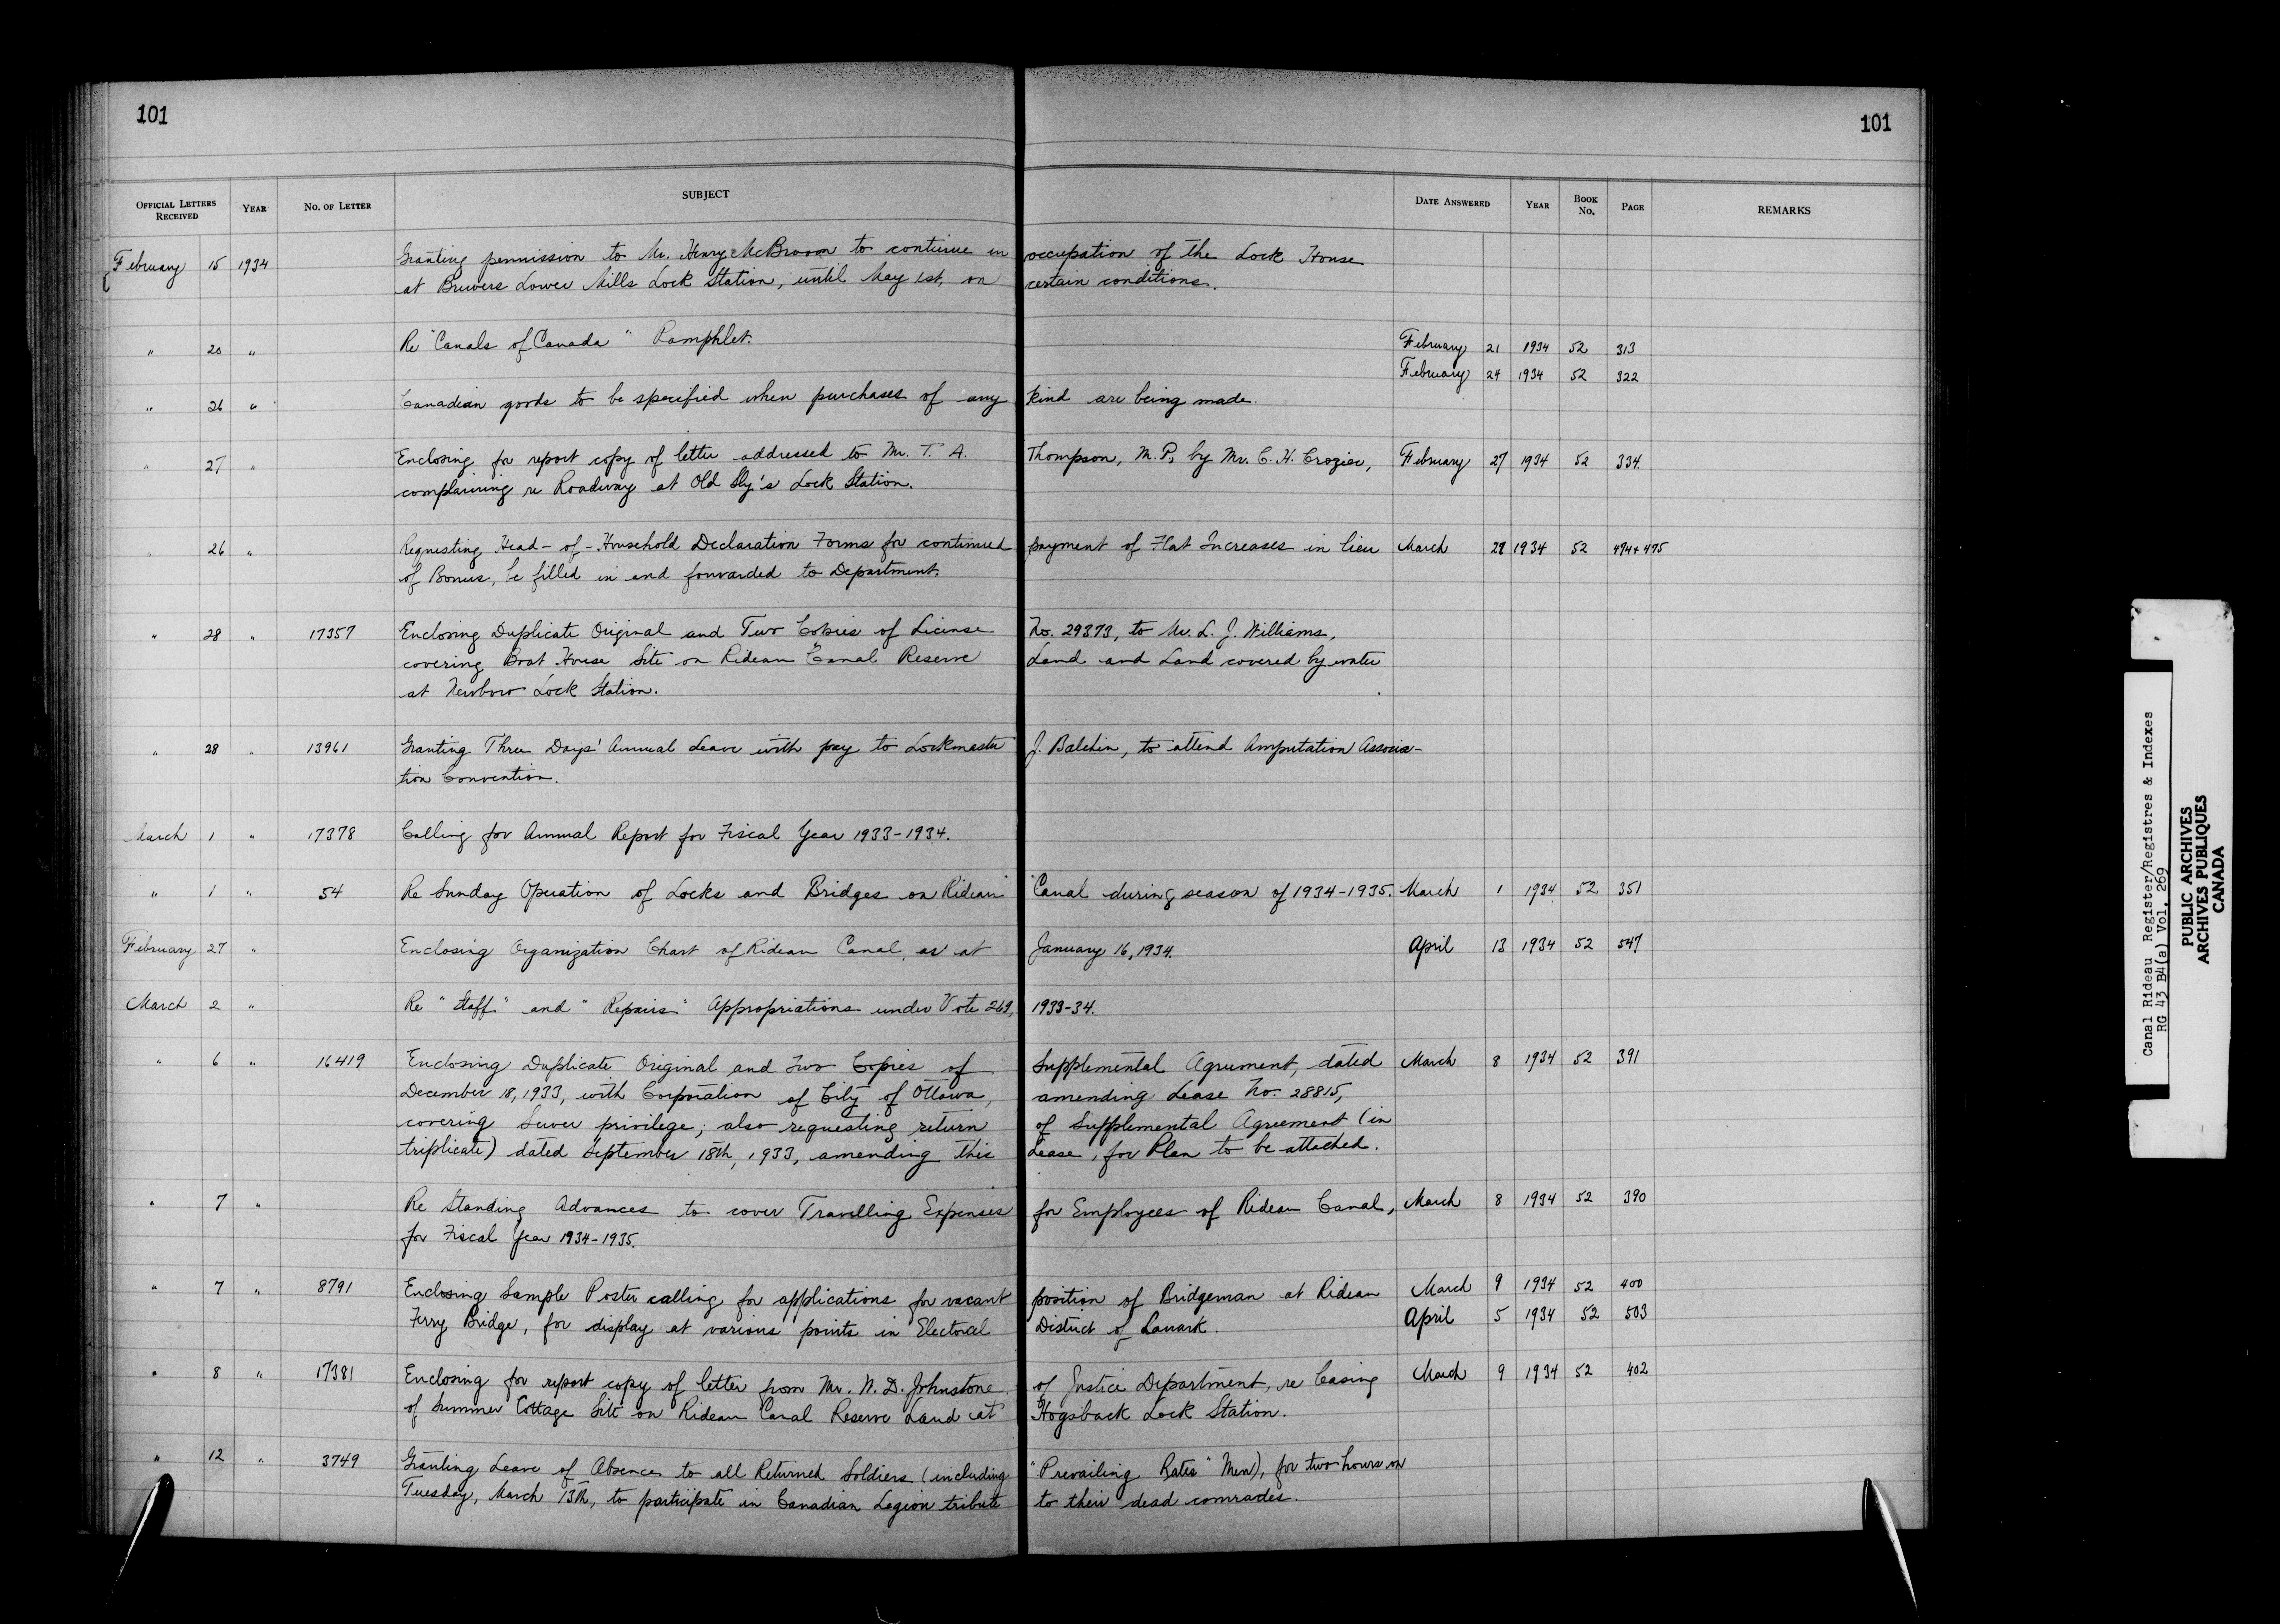 101
101
OFFICIAL LETTERS RECEIVED YEAR NO. OF LETTER SUBJECT DATE ANSWERED YEAR BOOK NO. PAGE REMARKS
February 15 1934 Granting permission to Mr. Henry McBroom to continue in occupation of the Lock House
at Brewers Lower Mills Lock Station, until May 1st, on certain conditions.
" 20 " Re "Canals of Canada" Pamphlet. February 21 1934 52 313
February 24 1934 52 322
" 26 " Canadian goods to be specified when purchases of any kind are being made.
" 27 " Enclosing for report copy of letter addressed to Mr. T. A. Thompson, M.P., by Mr. C. H. Crozier, February 27 1934 52 334
complaining re Roadway at Old Sly's Lock Station.
" 26 " Requesting Head-of-Household Declaration Forms for continued payment of Flat Increases in lieu March 1934 52 474+475
of Bonus, be filled in and forwarded to Department.
" 28 " 17357 Enclosing Duplicate Original and Two Copies of License No. 29373, to Mr. L. J. Williams,
covering Boat House Site on Rideau Canal Reserve Land and Land covered by water
at Newboro Lock Station.
" 28 " 13961 Granting Three Days' Annual Leave with pay to Lockmaster J. Balchin, to attend Amputation Associa-
tion Convention.
March 1 " 17378 Calling for Annual Report for Fiscal Year 1933-1934.
" 1 " 54 Re Sunday Operation of Locks and Bridges on Rideau Canal during season of 1934-1935. March 1 1934 52 351
February 27 " Enclosing Organization Chart of Rideau Canal, as at January 16, 1934. April 13 1934 52 547
March 2 " Re "Staff" and "Repairs" Appropriations under Vote 269, 1933-34.
" 6 " 16419 Enclosing Duplicate Original and Two Copies of Supplemental Agreement, dated March 8 1934 52 391
December 18, 1933, with Corporation of City of Ottawa, amending Lease No. 28815,
covering Sewer privilege; also requesting return of Supplemental Agreement (in
triplicate) dated September 18th, 1933, amending this Lease, for Plan to be attached.
" 7 " Re Standing Advances to cover Travelling Expenses for Employees of Rideau Canal, March 8 1934 52 390
for Fiscal Year 1934-1935.
" 7 " 8791 Enclosing Sample Poster calling for applications for vacant position of Bridgeman at Rideau March 9 1934 52 400
Ferry Bridge, for display at various points in Electoral District of Lanark. April 5 1934 52 503
" 8 " 17381 Enclosing for report copy of letter from Mr. W. D. Johnstone of Justice Department, re leasing March 9 1934 52 402
of Summer Cottage Site on Rideau Canal Reserve Land at Hogsback Lock Station.
" 12 " 3749 Granting Leave of Absence to all Returned Soldiers (including "Prevailing Rates" Men), for two hours on
Tuesday, March 13th, to participate in Canadian Legion tribute to their dead comrades.
Canal Rideau Register/Registres & Indexes
RG 43 B4(a) Vol. 269
PUBLIC ARCHIVES
ARCHIVES PUBLIQUES
CANADA